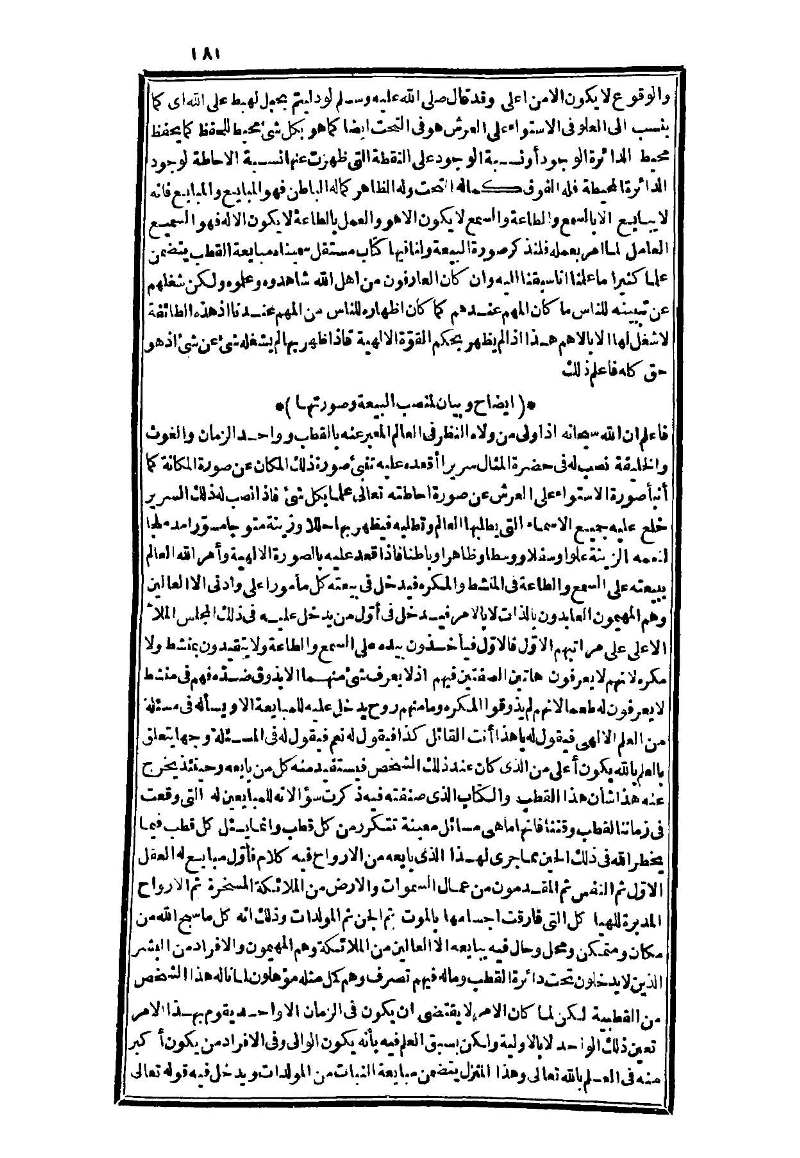 ١٨١
والوقوع لا يكون الا من اعلى وقد قال صلى الله عليه وسلم لو دليتم بحبل لهبط على الله اى كما
ينسب الى العلو فى الاستواء على العرش هو فى التحت ايضا كما هو بكل شئ محيط للحفظ كما يحفظ
محيط الدائرة الوجود أو نسبة الوجود على النقطة التى ظهرت عنها نسبة الاحاطة لوجود
الدائرة المحيطة فله الفوق كماله التحت وله الظاهر كماله الباطن فهو المبايع والمبايع فانه
لا يبايع الا بالسمع والطاعة والسمع لا يكون الا هو والعمل بالطاعة لا يكون الا له فهو السميع
العامل لما امر بعمله فلنذكر صورة البيعة ولنا فيها كتاب مستقل سميناه مبايعة القطب يتضمن
علما كثيرا ما علمنا انا سبقنا اليه وان كان العارفون من اهل الله شاهدوه وعلموه ولكن شغلهم
عن تبيينه للناس ما كان المهم عندهم كما كان اظهاره للناس من المهم عندنا اذ هذه الطائفة
لا شغل لها الا بالاهم هذا اذا لم يظهر بحكم القوة الالهية فاذا ظهر بها لم يشغله شئ عن شئ اذ هو
حق كله فاعلم ذلك
*(ايضاح وبيان لمنصب البيعة وصورتها)*
فاعلم ان الله سبحانه اذا ولى من ولاه النظر فى العالم المعبر عنه بالقطب وواحد الزمان والغوث
والخليفة نصب له فى حضرة المثال سريرا أقعده عليه تنبئ صورة ذلك المكان عن صورة المكانة كما
أنبأ صورة الاستواء على العرش عن صورة احاطته تعالى علما بكل شئ فاذا نصب له ذلك السرير
خلع عليه جميع الاسماء التى يطلبها العالم وتطلبه فيظهر بها حللا وزينة متوجا مسورا مدملجا
لتعمه الزينة علوا وسفلا ووسطا وظاهرا وباطنا فاذا قعد عليه بالصورة الالهية وأمر الله العالم
ببيعته على السمع والطاعة فى المنشط والمكره فيدخل فى بيعته كل مأمور اعلى وادنى الا العالين
وهم المهيمون العابدون بالذات لا بالامر فيدخل فى أول من يدخل عليه فى ذلك المجلس الملأ
الاعلى على مراتبهم الاول فالاول فيأخذون بيده على السمع والطاعة ولا يتقيدون بمنشط ولا
مكره لانهم لا يعرفون هاتين الصفتين فيهم اذ لا يعرف شئ منهما الا بذوق ضده فهم فى منشط
لا يعرفون له طعما لانهم لم يذوقوا المكره وما منهم روح يدخل عليه للمبايعة الا ويسأله فى مسئلة
من العلم الالهى فيقول له يا هذا أنت القائل كذا فيقول له نعم فيقول له فى المسئلة وجها يتعلق
بالعلم بالله يكون أعلى من الذى كان عند ذلك الشخص فيستفيد منه كل من بايعه وحينئذ يخرج
عنه هذا شان هذا القطب والكتاب الذى صنفته فيه ذكرت سؤالاته للمبايعين له التى وقعت
فى زماننا لقطب وقتنا فانها ما هى مسائل معينة تتكرر من كل قطب وانما يسئل كل قطب فيما
يخطر الله فى ذلك الحين مما جرى لهذا الذى بايعه من الارواح فيه كلام فأول مبايع له العقل
الاول ثم النفس ثم المقدمون من عمال السموات والارض من الملائكة المسخرة ثم الارواح
المدبرة للهيا كل التى فارقت اجسامها بالموت ثم الجن ثم المولدات وذلك انه كل ما سبح الله من
مكان ومتمكن ومحل وحال فيه يبايعه الا العالين من الملائكة وهم المهيمون والافراد من البشر
الذين لا يدخلون تحت دائرة القطب وماله فيهم تصرف وهم كمل مثله مؤهلون لما ناله هذا الشخص
من القطبية لكن لما كان الامر لا يقتضى ان يكون فى الزمان الا واحد يقوم بهذا الامر
تعين ذلك الواحد لا بالاولية ولكن بسبق العلم فيه بأنه يكون الوالى وفى الافراد من يكون أكبر
منه فى العلم بالله تعالى وهذا المنزل يتضمن مبايعة النبات من المولدات ويدخل فيه قوله تعالى